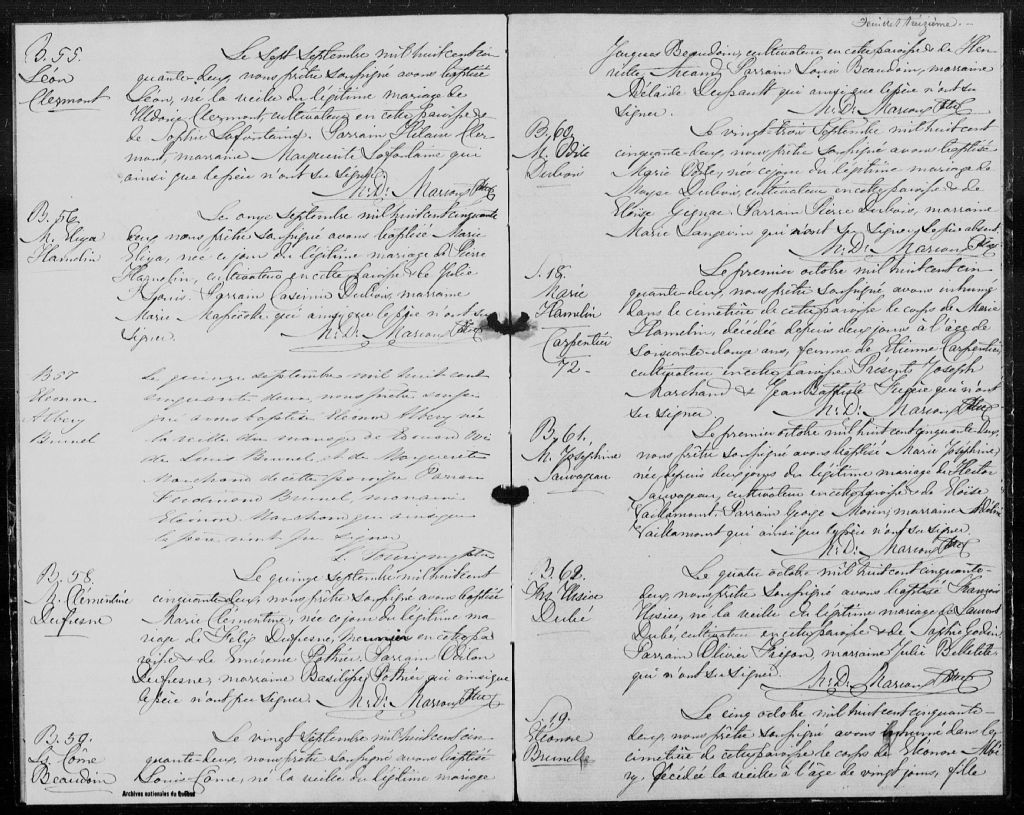 B. 55.
Léon
Clermont
Le Sept Septembre mil huit cent cin
quante-deux, nous prêtre soussigné avons baptisé
Léon, né la veille du légitime mariage de
Clermont, cultivateur en cette paroisse &
de Sophie Lafontaine. Parrain Hilaire Cler
mont, marraine Marguerite Lafontaine qui
ainsi que le père n'ont su signer.
M. D. Marcoux Ptre
B. 56.
M. Eliza
Hamelin
Le onze Septembre mil huit cent cinquante
deux nous prêtre soussigné avons baptisé Marie
Eliza, née ce jour du légitime mariage de Pierre
Hamelin, cultivateur en cette paroisse & de Julie
Parrain Casimir Dubois, marraine
Marie qui ainsi que le père n'ont su
signer.
M. D. Marcoux Ptre
B 57
Eléonore
Albery
Brunel
Le quinze septembre mil huit cent
cinquante deux, nous prêtre soussi
gné avons baptisé Eléonore Albery née
la veille du mariage de Edouard
de Louis Brunel et de Marguerite
Marchand de cette paroisse Parrain
Ferdinand Brunel marraine
Eléonore Marchand qui ainsi que
le père n'ont su signer
ptre
B. 58.
M. Clémentine
Dufresne
Le quinze Septembre mil huit cent
cinquante-deux, nous prêtre soussigné avons baptisé
Marie Clémentine, née ce jour du légitime ma
riage de Félix Dufresne, meunier en cette pa
roisse & de Emérence Pothier. Parrain Odilon
Dufresne, marraine Basilisse Pothier qui ainsi que
le père n'ont pu signer. M. D. Marcoux Ptre
B. 59.
Ls. Côme
Beaudoin
Le vingt Septembre mil huit cent cin
quante-deux, nous prêtre soussigné avons baptisé
Louis Côme, né la veille du légitime mariage
Archives nationales du Québec
Feuillet treizième.
Jacques Beaudoin, cultivateur en cette paroisse & de Hen
riette Parrain Louis Beaudoin, marraine
Adélaïde Dusault qui ainsi que le père n'ont su
signer. M. D. Marcoux Ptre
B. 60.
M. Odile
Dubois
Le vingt-trois Septembre mil huit cent
cinquante-deux, nous prêtre soussigné avons baptisé
Marie Odile, née ce jour du légitime mariage de
Moyse Dubois, cultivateur en cette paroisse & de
Eloïse Gignac. Parrain Pierre Dubois, marraine
Marie Langevin qui n'ont su signer, le père absent.
M. D. Marcoux Ptre
S. 18.
Marie
Hamelin
Carpentier
72 -
Le premier octobre mil huit cent cin
quante-deux, nous prêtre soussigné avons inhumé
dans le cimetière de cette paroisse le corps de Marie
Hamelin, décédée depuis deux jours à l'âge de
Soixante-douze ans, femme de Etienne Carpentier,
cultivateur en cette paroisse. Présents Joseph
Marchand & Jean Baptiste qui n'ont
su signer. M. D. Marcoux Ptre
B. 61.
M. Joséphine
Sauvageau
Le premier octobre mil huit cent cinquante-deux,
nous prêtre soussigné avons baptisé Marie Joséphine,
née depuis deux jours du légitime mariage de Hector
Sauvageau, cultivateur en cette paroisse & de Eloïse
Vaillamourt. Parrain George marraine
Vaillamourt qui ainsi que le père n'ont su signer
M. D. Marcoux Ptre
B. 62.
Dubé
Le quatre octobre mil huit cent cinquante-
deux, nous prêtre soussigné avons baptisé François
né la veille du légitime mariage de Laurent
Dubé, cultivateur en cette paroisse & de Sophie Godin.
Parrain Olivier marraine Julie Bellelile
qui n'ont su signer.
M. D. Marcoux Ptre
S. 19.
Eléonore
Brunelle
Le cinq octobre mil huit cent cinquante-
deux, nous prêtre soussigné avons inhumé dans le
cimetière de cette paroisse le corps de Eléonore Albé
ry, décédée la veille à l'âge de vingt jours, fille